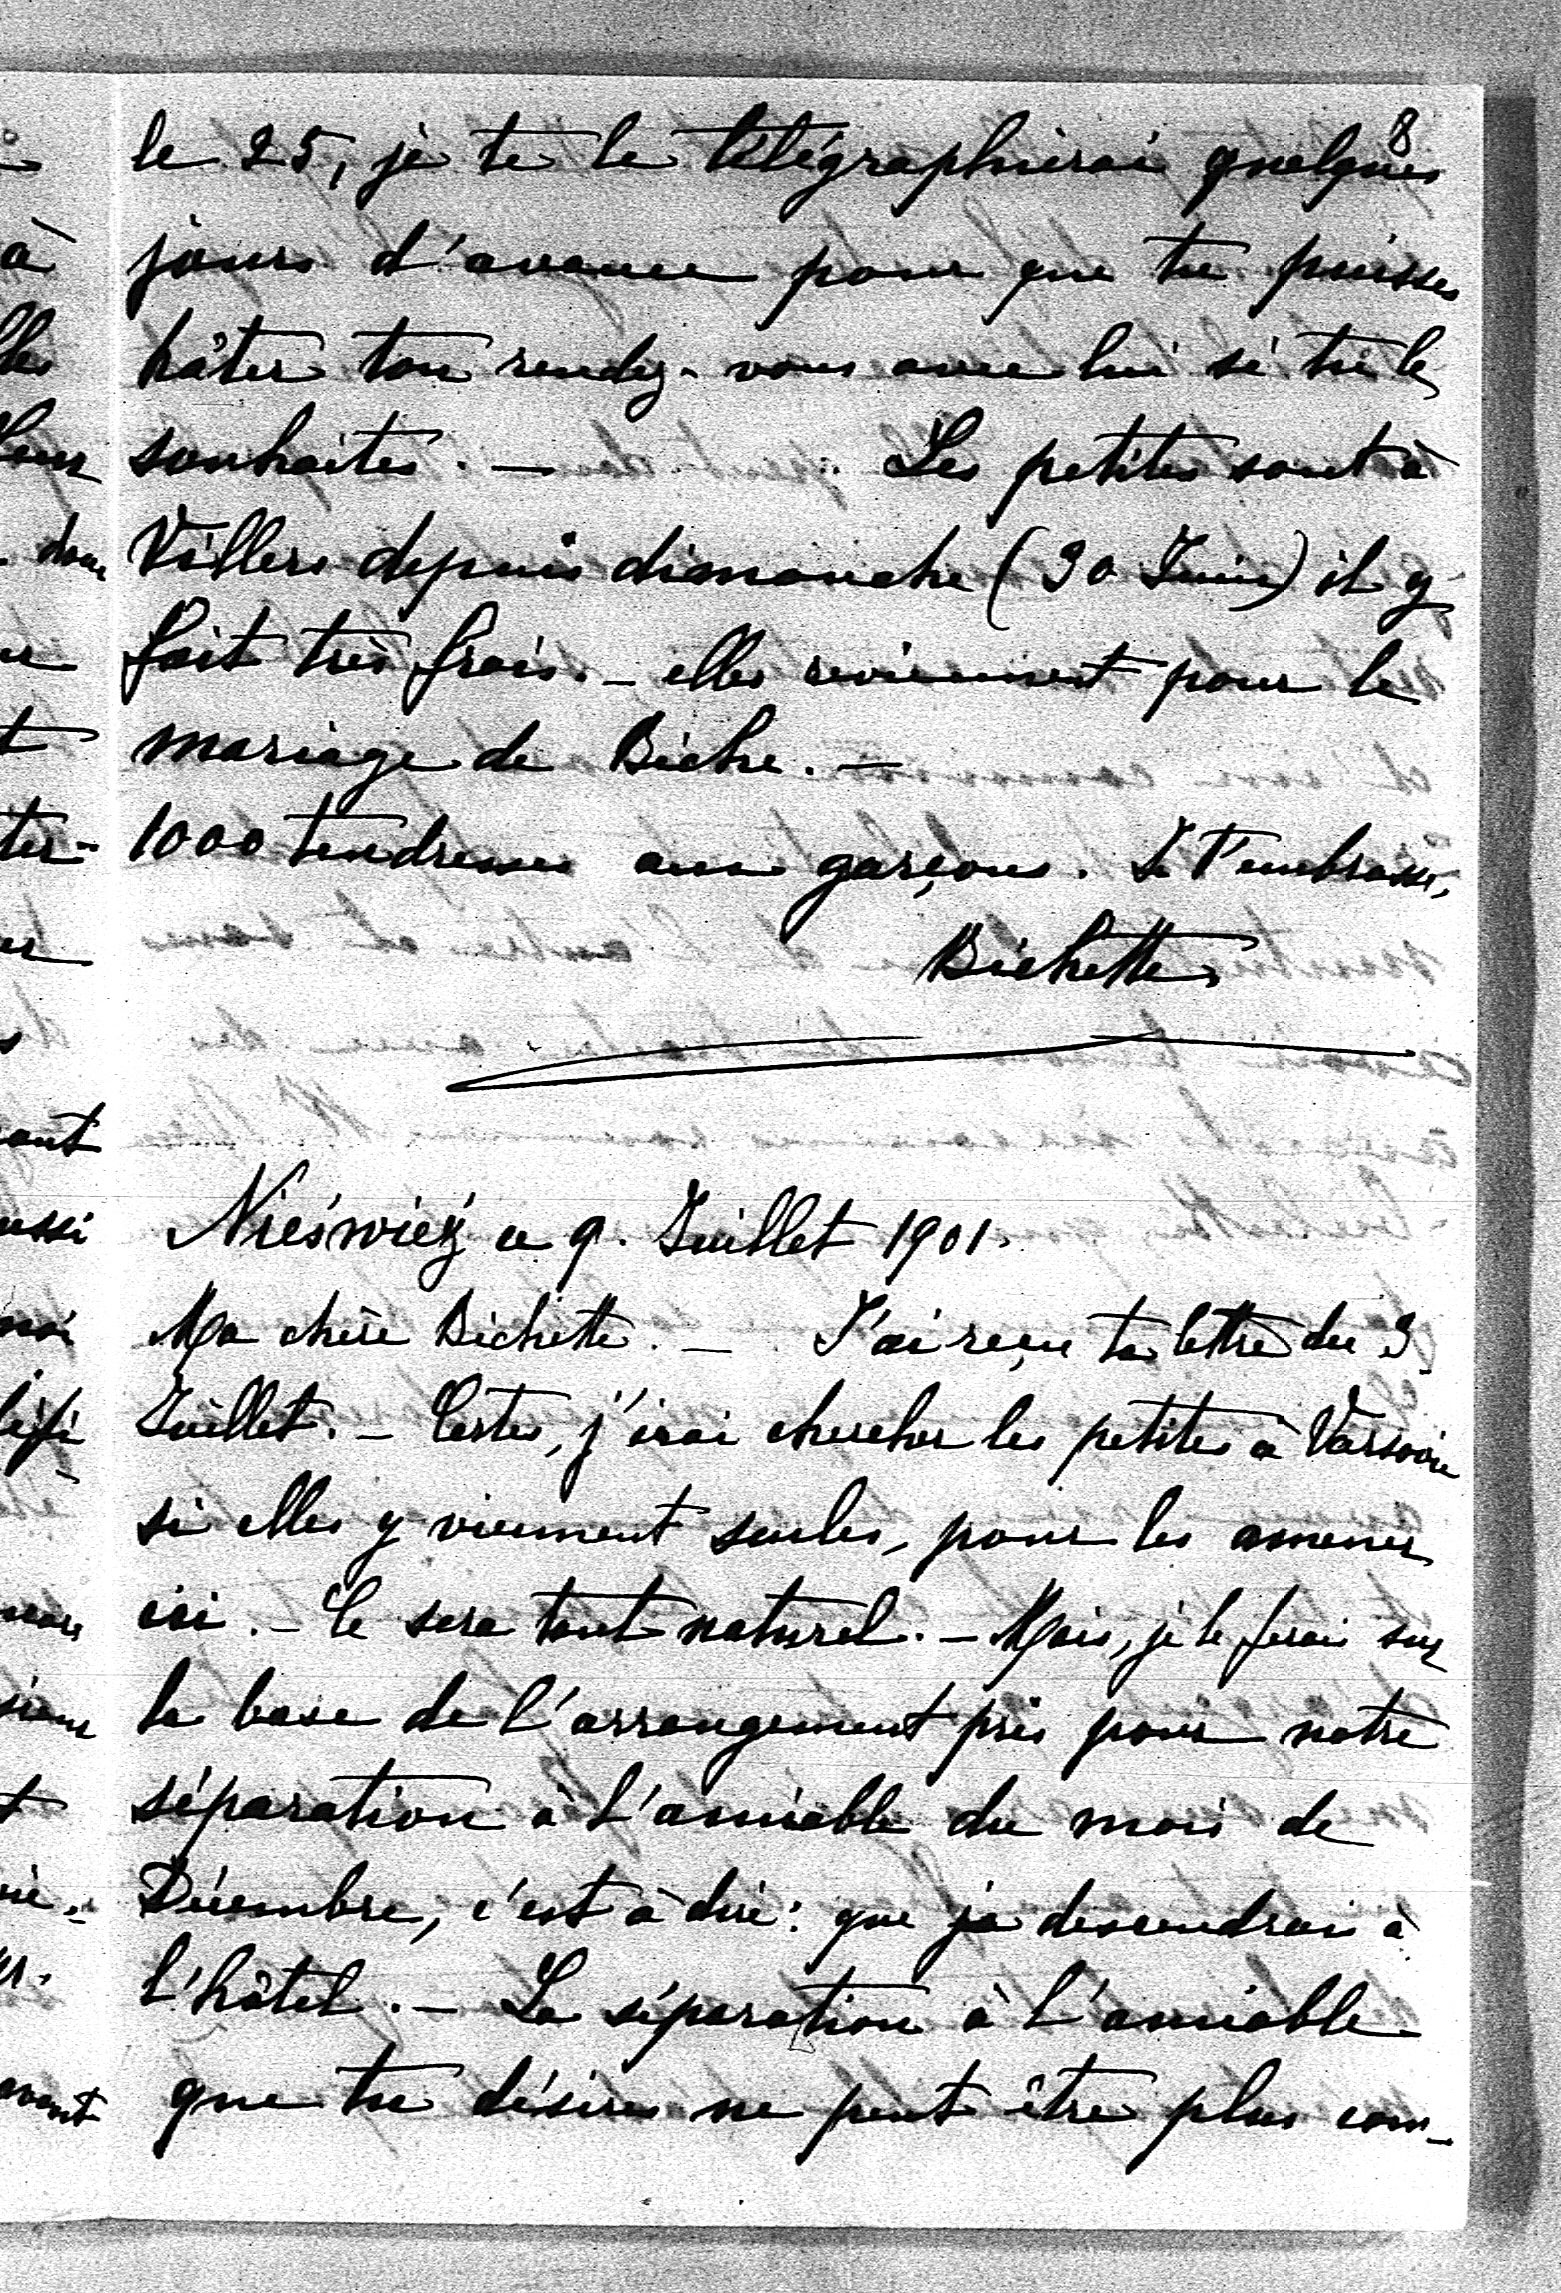 8
le 25, je te le télégraphierai quelques
jours d'avance pour que tu puisses
hâter ton rendez-vous avec lui si tu le
souhaites. — Les petites sont à
Villers depuis dimanche (30 Juin) il y
fait très frais. — elles reviennent pour le
mariage de Biche. —
1000 tendresses aux garçons. Je t'embrasse,
Bichette
Nieświéż ce 9. Juillet 1901.
Ma chère Bichette. — J'ai reçu ta lettre du 3
Juillet. — Certes, j'irai chercher les petites à Varsovie
si elles y viennent seules, pour les amener
ici. — Ce sera tout naturel. — Mais, je le ferai sur
la base de l'arrangement pris pour notre
séparation à l'amiable du mois de
Décembre, c'est à dire: que je descendrai à
l'hôtel. — La séparation à l'amiable
que tu désires ne peut être plus com-